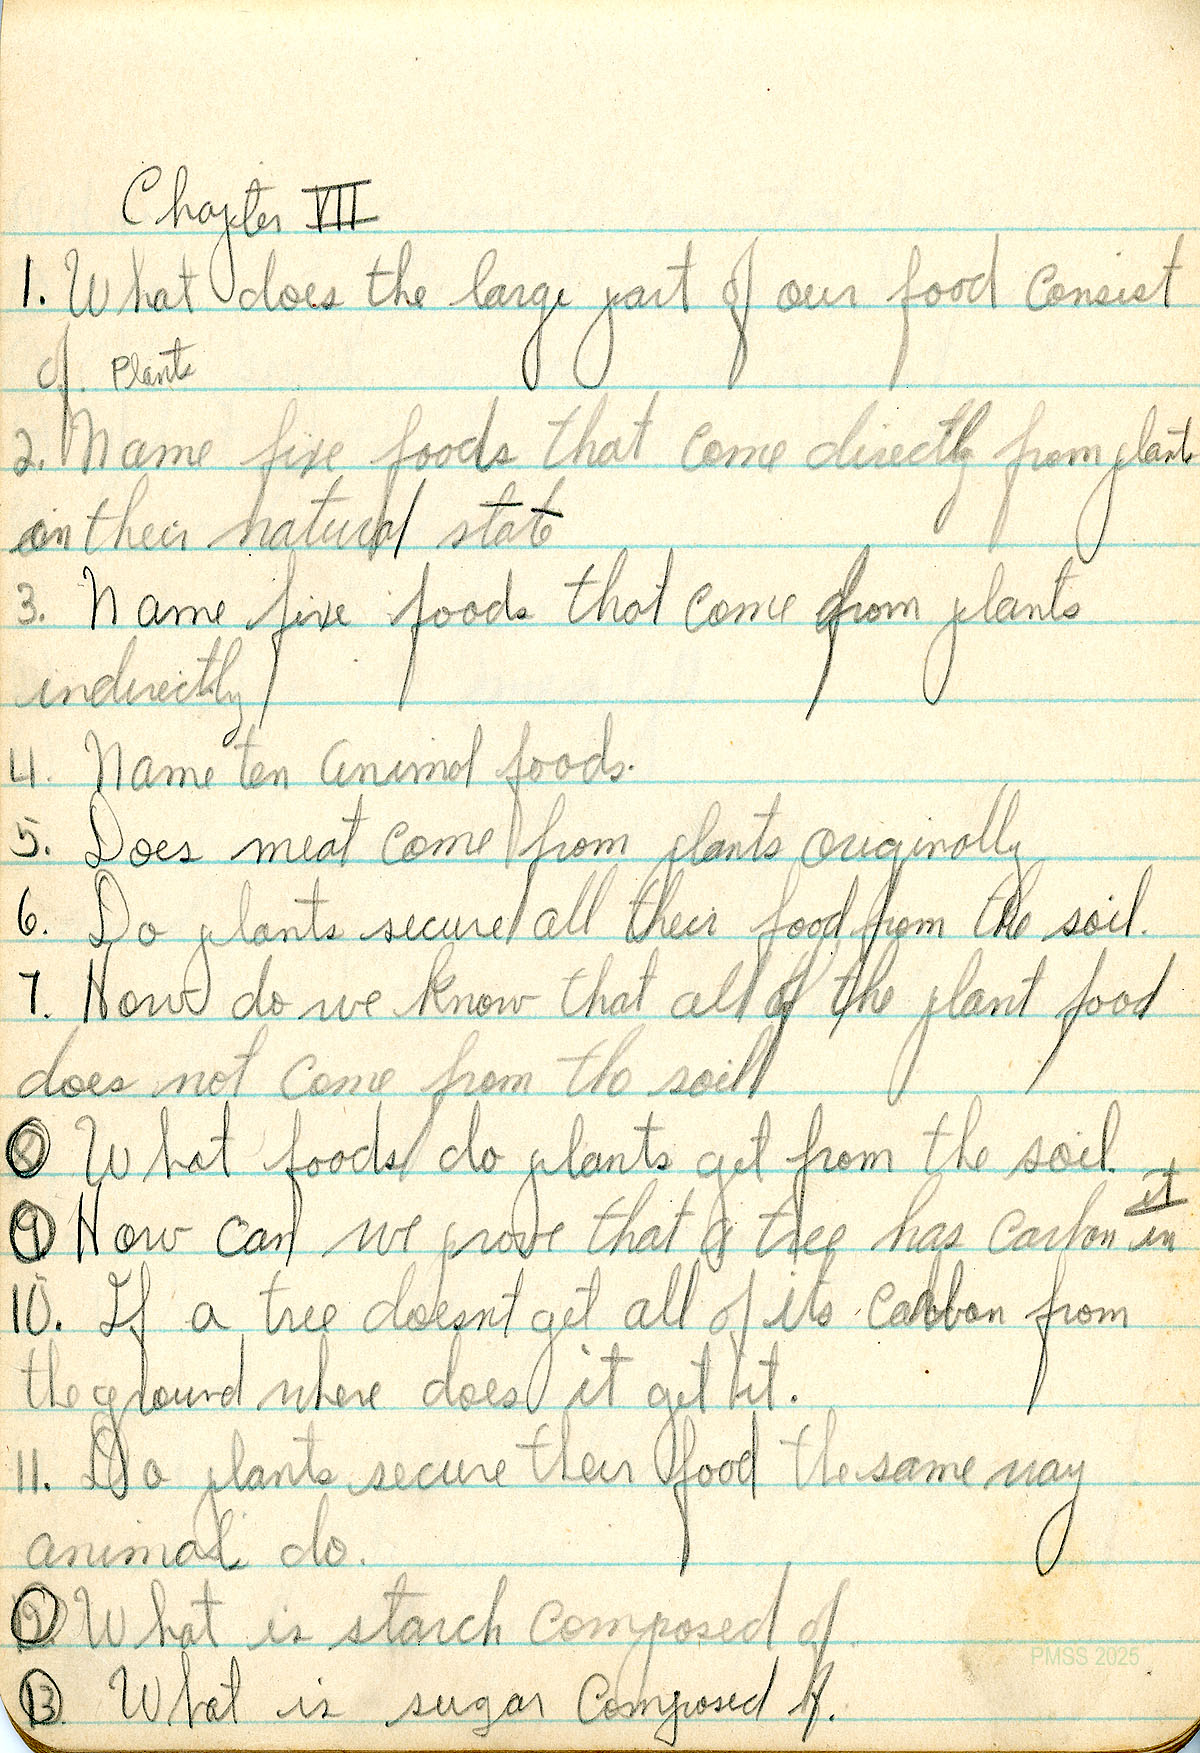 Chapter VII
1. What does the large part of our food consist
of. Plants
2. Name five foods that come directly from plants
in their natural state
3. Name five foods that come from plants
indirectly
4. Name ten animal foods.
5. Does meat come from plants originally
6. Do plants secure all their food from the soil.
7. How do we know that all of the plant food
does not come from the soil
8 What foods do plants get from the soil.
it
9 How can we prove that a tree has carbon in
10. If a tree doesnt get all of its carbon from
the ground where does it get it.
11. Do plants secure their food the same way
animals do.
12. What is starch composed of.
13. What is sugar composed of.
PMSS 2025